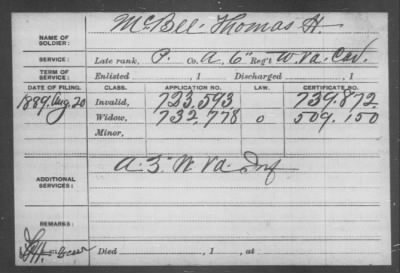 NAME OF SOLDIER: McBee Thomas H.
SERVICE: Late rank, P. Co. A, 6" Reg't W. Va. Cav.
TERM OF SERVICE: Enlisted , 1 Discharged , 1
DATE OF FILING. CLASS. APPLICATION NO. LAW. CERTIFICATE NO.
1889. Aug. 20 Invalid, 723.593 739.872.
Widow, 732.778 o 509.150
Minor,
ADDITIONAL SERVICES: A. 3" W Va Inf
REMARKS:
Died , 1 , at